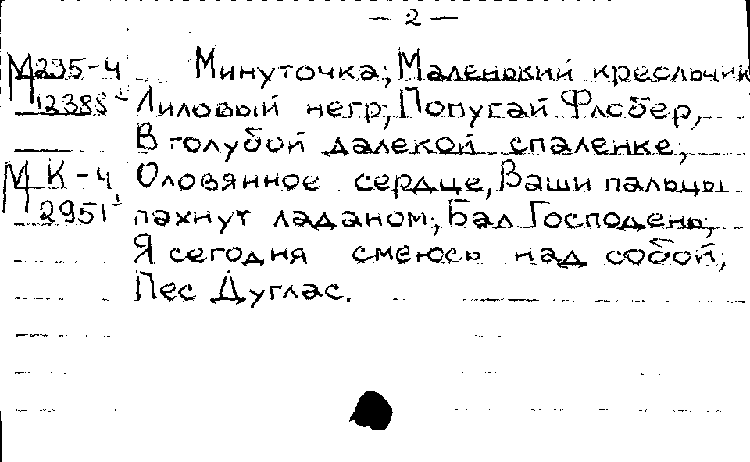 — 2 —
М 295-4 Минуточка; Маленький креольчик
12388 Лиловый негр; Попугай Флобер,
В голубой далекой спаленке;
М К-4 Оловянное сердце, Ваши пальцы
2951 пахнут ладаном; Бал Господень;
Я сегодня смеюсь над собой;
Пес Дуглас.